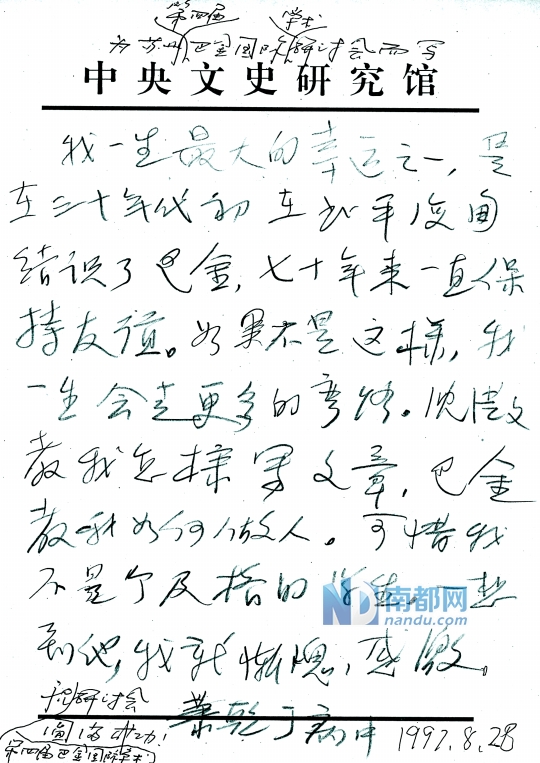 第四届 学术
为苏州巴金国际研讨会而写
中央文史研究馆
我一生最大的幸运之一，是
在三十年代初在北平
结识了巴金，七十年来一直保
持友谊。如果不是这样，我
一生会走更多的弯路。沈从文
教我怎样写文章，巴金
教我如何做人。可惜我
不是个及格的学生 一想
到他，我就惭愧、感激。
祝研讨会
圆满成功！
第四届巴金国际学术
萧乾于病中 1997.8.28
南都网
nandu.com